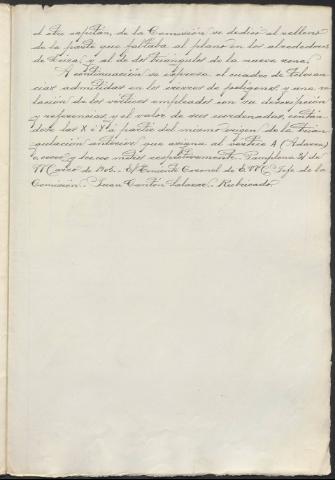 el otro capitán, de la Comisión se dedicó al relleno
de la parte que faltaba al plano en los alrededores
de Huiza, y al de dos triangulos de la nueva zona.
A continuación se expresa el cuadro de toleran
cias admitidas en los errores de poligonos y una re
lación de los vertices empleados con su descripción
y referencias y el valor de sus coordenadas, contan
dose las X é Y a partir del mismo origen de la trian
gulación anterior que asigna al vertice A (Adarra)
y metros respectivamente. Pamplona 31 de
Marzo de 1905.- El Teniente Coronel de E. M. Jefe de la
Comisión.- Juan Cantón Salazar.- Rubricado